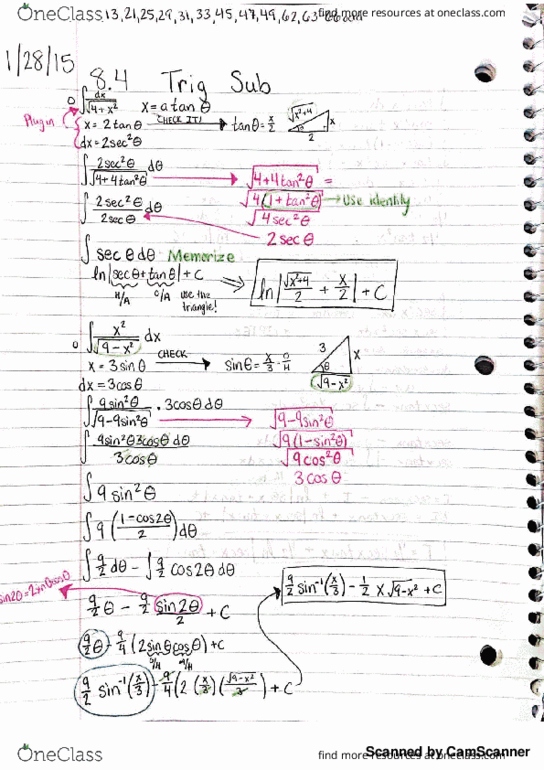 OneClass
13,21,25,29,31,33,45,47,49,62,63
find more resources at oneclass.com
1/28/15
8.4 Trig Sub
∫ dx/√(4+x²) x = a tan θ
Plug in
x = 2tanθ CHECK IT! → tanθ = x/2 √(x²+4) x θ 2
dx = 2sec²θ
∫ 2sec²θ/√(4+4tan²θ) dθ → √(4+4tan²θ) =
√(4(1+tan²θ)) → Use identity
∫ 2sec²θ/2secθ dθ √(4sec²θ)
2secθ
∫ secθ dθ Memorize
ln|secθ+tanθ| + C ⇒ ln|√(x²+4)/2 + x/2| + C
H/A O/A use the triangle!
∫ x²/√(9-x²) dx
x = 3sinθ CHECK → sinθ = x/3 O/H 3 x θ √(9-x²)
dx = 3cosθ
∫ 9sin²θ/√(9-9sin²θ) · 3cosθ dθ → √(9-9sin²θ)
√(9(1-sin²θ))
∫ 9sin²θ3cosθ dθ/3cosθ √(9cos²θ)
3cosθ
∫ 9sin²θ
∫ 9((1-cos2θ)/2) dθ
∫ 9/2 dθ - ∫ 9/2 cos2θ dθ
sin2θ = 2sinθcosθ
9/2 θ - 9/2 sin2θ/2 + C
9/2 sin⁻¹(x/3) - 1/2 x√(9-x²) + C
9/2 θ - 9/4 (2sinθcosθ) + C
O/H A/H
9/2 sin⁻¹(x/3) - 9/4 (2(x/3)(√(9-x²)/3) + C
OneClass
find more resources at oneclass.com
Scanned by CamScanner